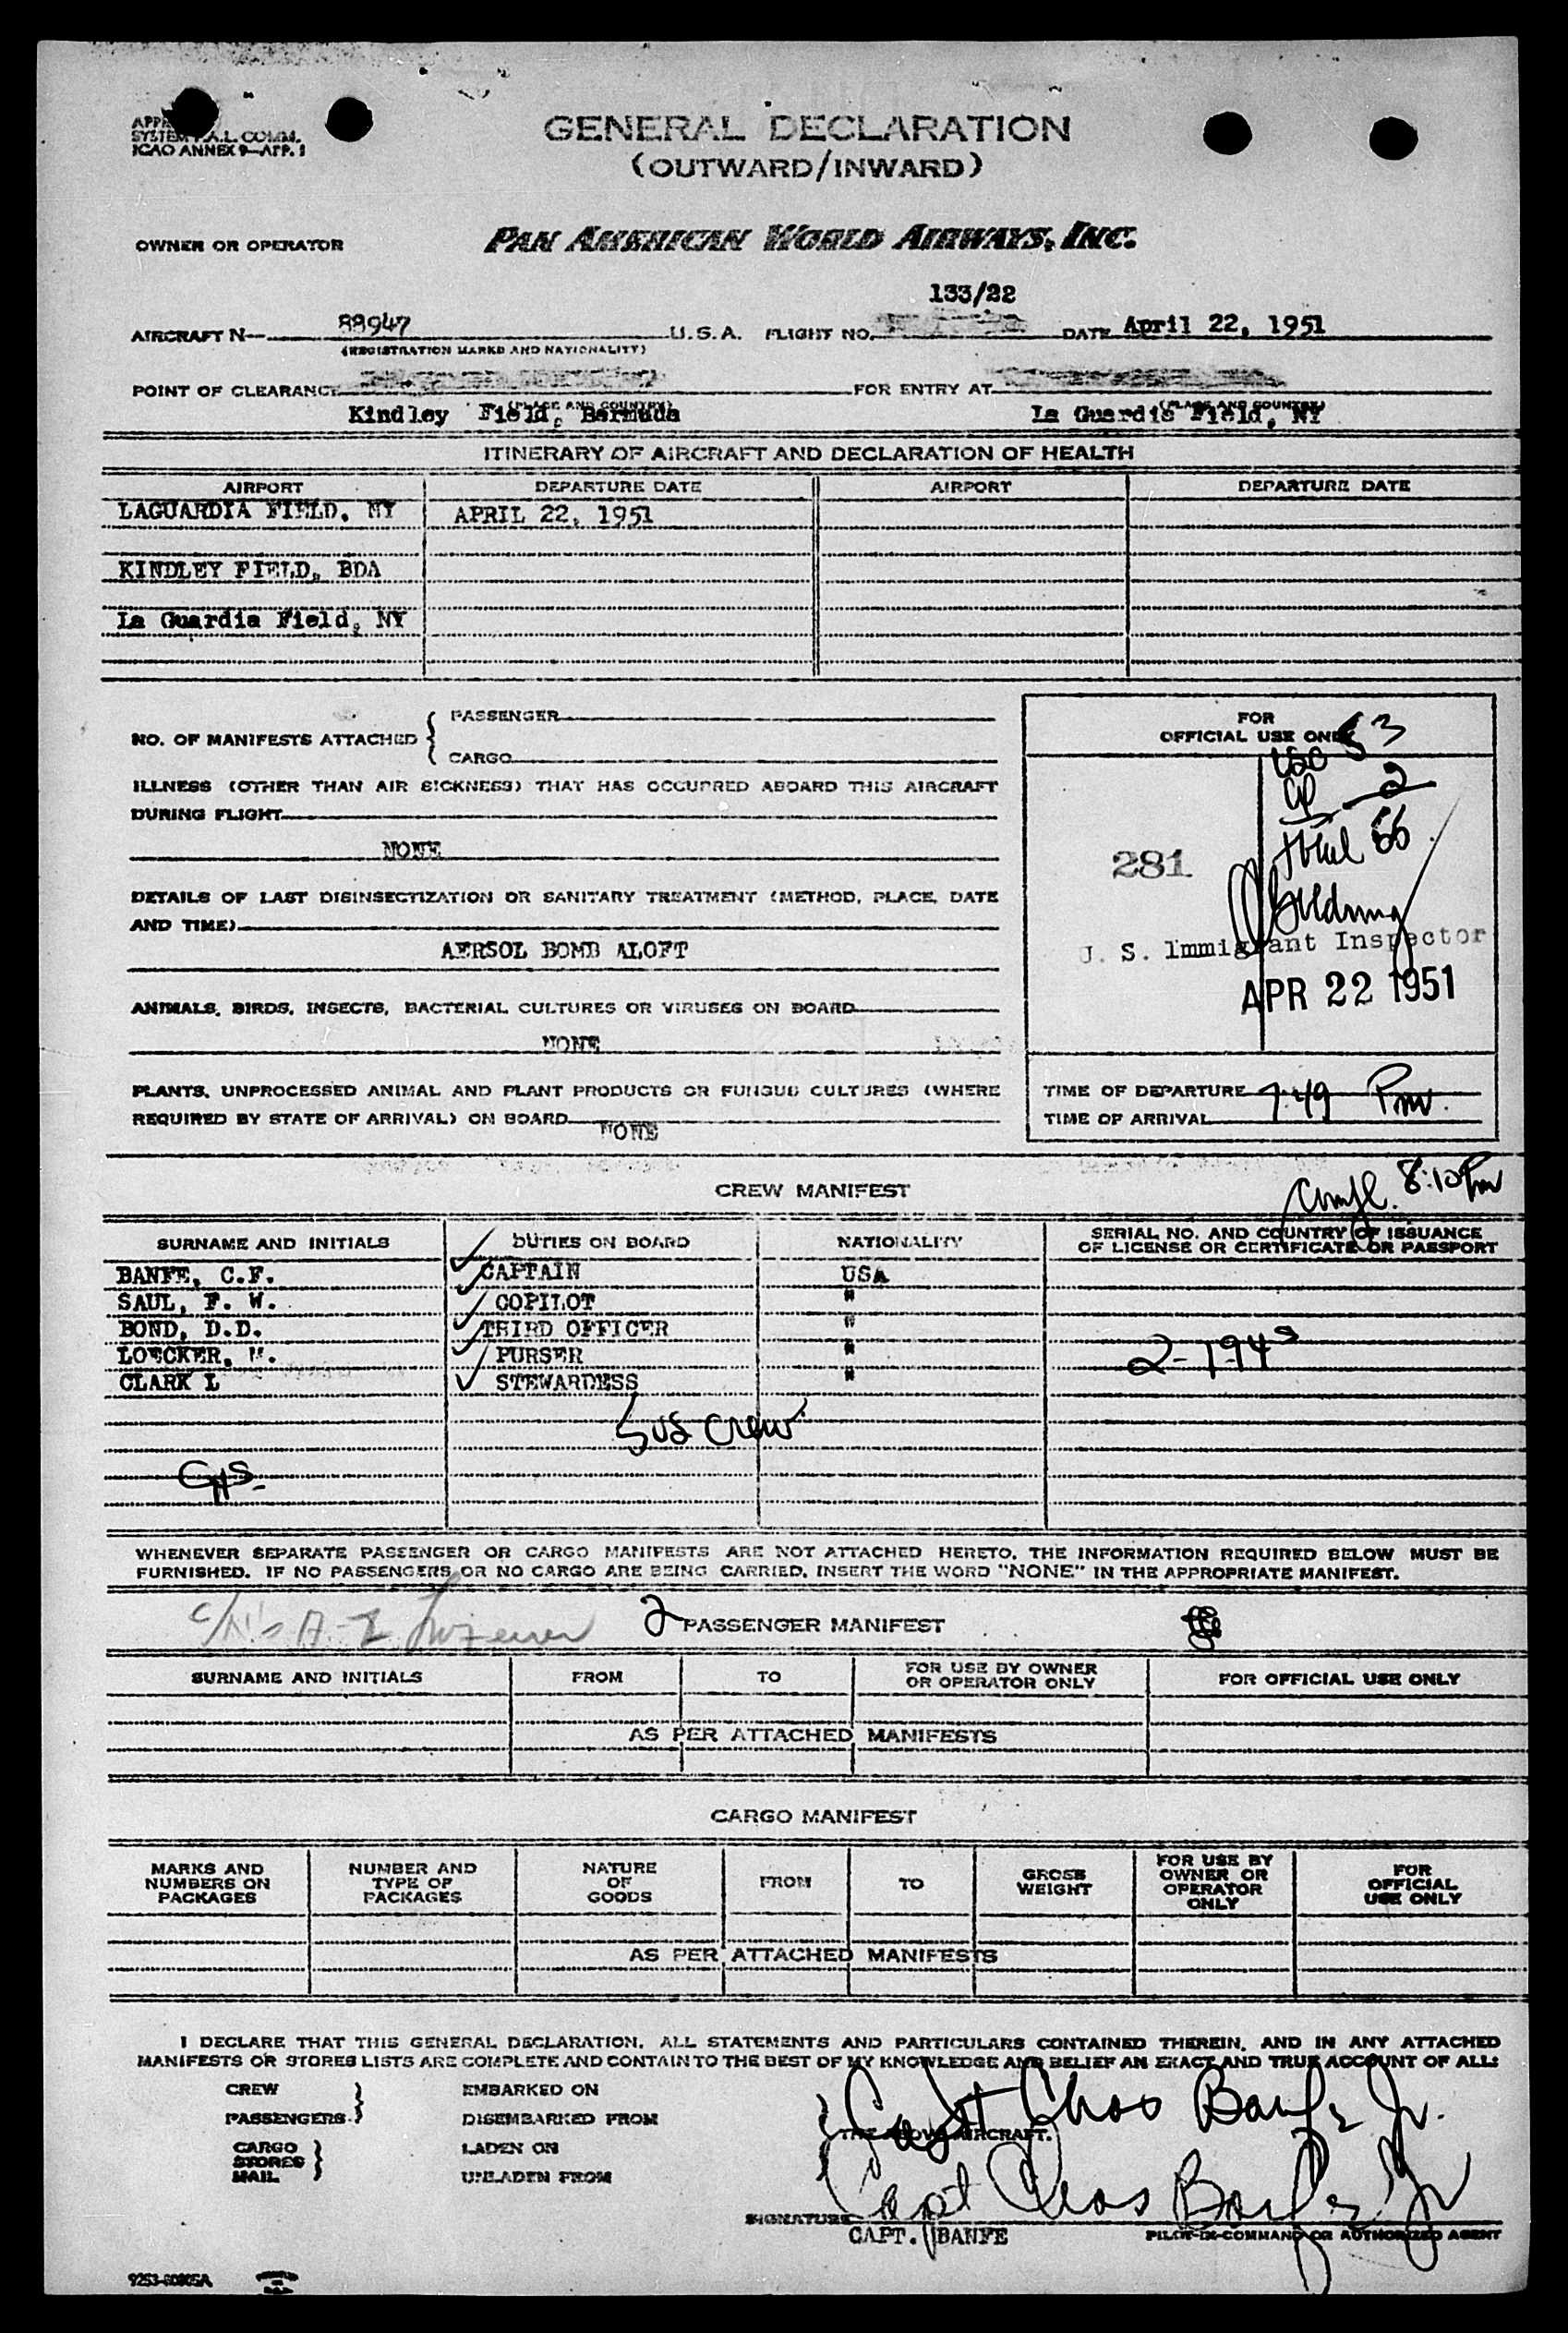 SYSTEM F.A.L. COMM.
ICAO ANNEX 9—APP. 1
GENERAL DECLARATION
(OUTWARD/INWARD)
OWNER OR OPERATOR PAN AMERICAN WORLD AIRWAYS, INC.
133/22
AIRCRAFT N— 88947 U.S.A. FLIGHT NO. DATE April 22, 1951
(REGISTRATION MARKS AND NATIONALITY)
POINT OF CLEARANCE FOR ENTRY AT
(PLACE AND COUNTRY) (PLACE AND COUNTRY)
Kindley Field, Bermuda La Guardia Field, NY
ITINERARY OF AIRCRAFT AND DECLARATION OF HEALTH
AIRPORT DEPARTURE DATE AIRPORT DEPARTURE DATE
LAGUARDIA FIELD, NY APRIL 22, 1951
KINDLEY FIELD, BDA
La Guardia Field, NY
NO. OF MANIFESTS ATTACHED { PASSENGER
CARGO
ILLNESS (OTHER THAN AIR SICKNESS) THAT HAS OCCURRED ABOARD THIS AIRCRAFT
DURING FLIGHT
NONE
DETAILS OF LAST DISINSECTIZATION OR SANITARY TREATMENT (METHOD, PLACE, DATE
AND TIME)
AERSOL BOMB ALOFT
ANIMALS, BIRDS, INSECTS, BACTERIAL CULTURES OR VIRUSES ON BOARD
NONE
PLANTS, UNPROCESSED ANIMAL AND PLANT PRODUCTS OR FUNGUS CULTURES (WHERE
REQUIRED BY STATE OF ARRIVAL) ON BOARD
NONE
FOR
OFFICIAL USE ONLY
USC 53
2
281
Total 55
U. S. Immigrant Inspector
APR 22 1951
TIME OF DEPARTURE 7:49 Pm.
TIME OF ARRIVAL
CREW MANIFEST
Compl. 8:10 Pm
SURNAME AND INITIALS DUTIES ON BOARD NATIONALITY SERIAL NO. AND COUNTRY OF ISSUANCE
OF LICENSE OR CERTIFICATE OR PASSPORT
BANFE, C.F. CAPTAIN USA
SAUL, F. W. COPILOT "
BOND, D.D. THIRD OFFICER "
LOECKER, PURSER " 2-794
CLARK L STEWARDESS "
5 US Crew
WHENEVER SEPARATE PASSENGER OR CARGO MANIFESTS ARE NOT ATTACHED HERETO, THE INFORMATION REQUIRED BELOW MUST BE
FURNISHED. IF NO PASSENGERS OR NO CARGO ARE BEING CARRIED, INSERT THE WORD "NONE" IN THE APPROPRIATE MANIFEST.
2 PASSENGER MANIFEST
SURNAME AND INITIALS FROM TO FOR USE BY OWNER
OR OPERATOR ONLY FOR OFFICIAL USE ONLY
AS PER ATTACHED MANIFESTS
CARGO MANIFEST
MARKS AND
NUMBERS ON
PACKAGES NUMBER AND
TYPE OF
PACKAGES NATURE
OF
GOODS FROM TO GROSS
WEIGHT FOR USE BY
OWNER OR
OPERATOR
ONLY FOR
OFFICIAL
USE ONLY
AS PER ATTACHED MANIFESTS
I DECLARE THAT THIS GENERAL DECLARATION, ALL STATEMENTS AND PARTICULARS CONTAINED THEREIN, AND IN ANY ATTACHED
MANIFESTS OR STORES LISTS ARE COMPLETE AND CONTAIN TO THE BEST OF MY KNOWLEDGE AND BELIEF AN EXACT AND TRUE ACCOUNT OF ALL:
CREW EMBARKED ON
Capt Chas Banfe Jr.
PASSENGERS DISEMBARKED FROM
THE ABOVE AIRCRAFT.
CARGO LADEN ON
STORES
MAIL UNLADEN FROM
Capt Chas Banfe Jr
SIGNATURE
CAPT. BANFE PILOT-IN-COMMAND OR AUTHORIZED AGENT
9253-60805A